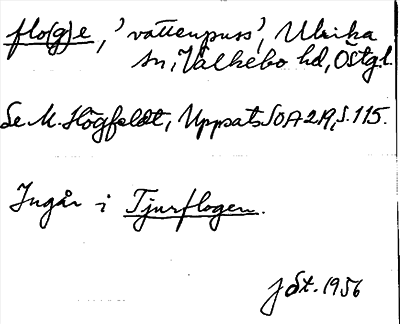 flo(g)e, 'vattenpuss', Ulrika
sn, Valkebo hd, Östgl.
Se M. Högfeldt, Uppsats SOA 219, s. 115.
Ingår i Tjurflogen.
J St. 1956